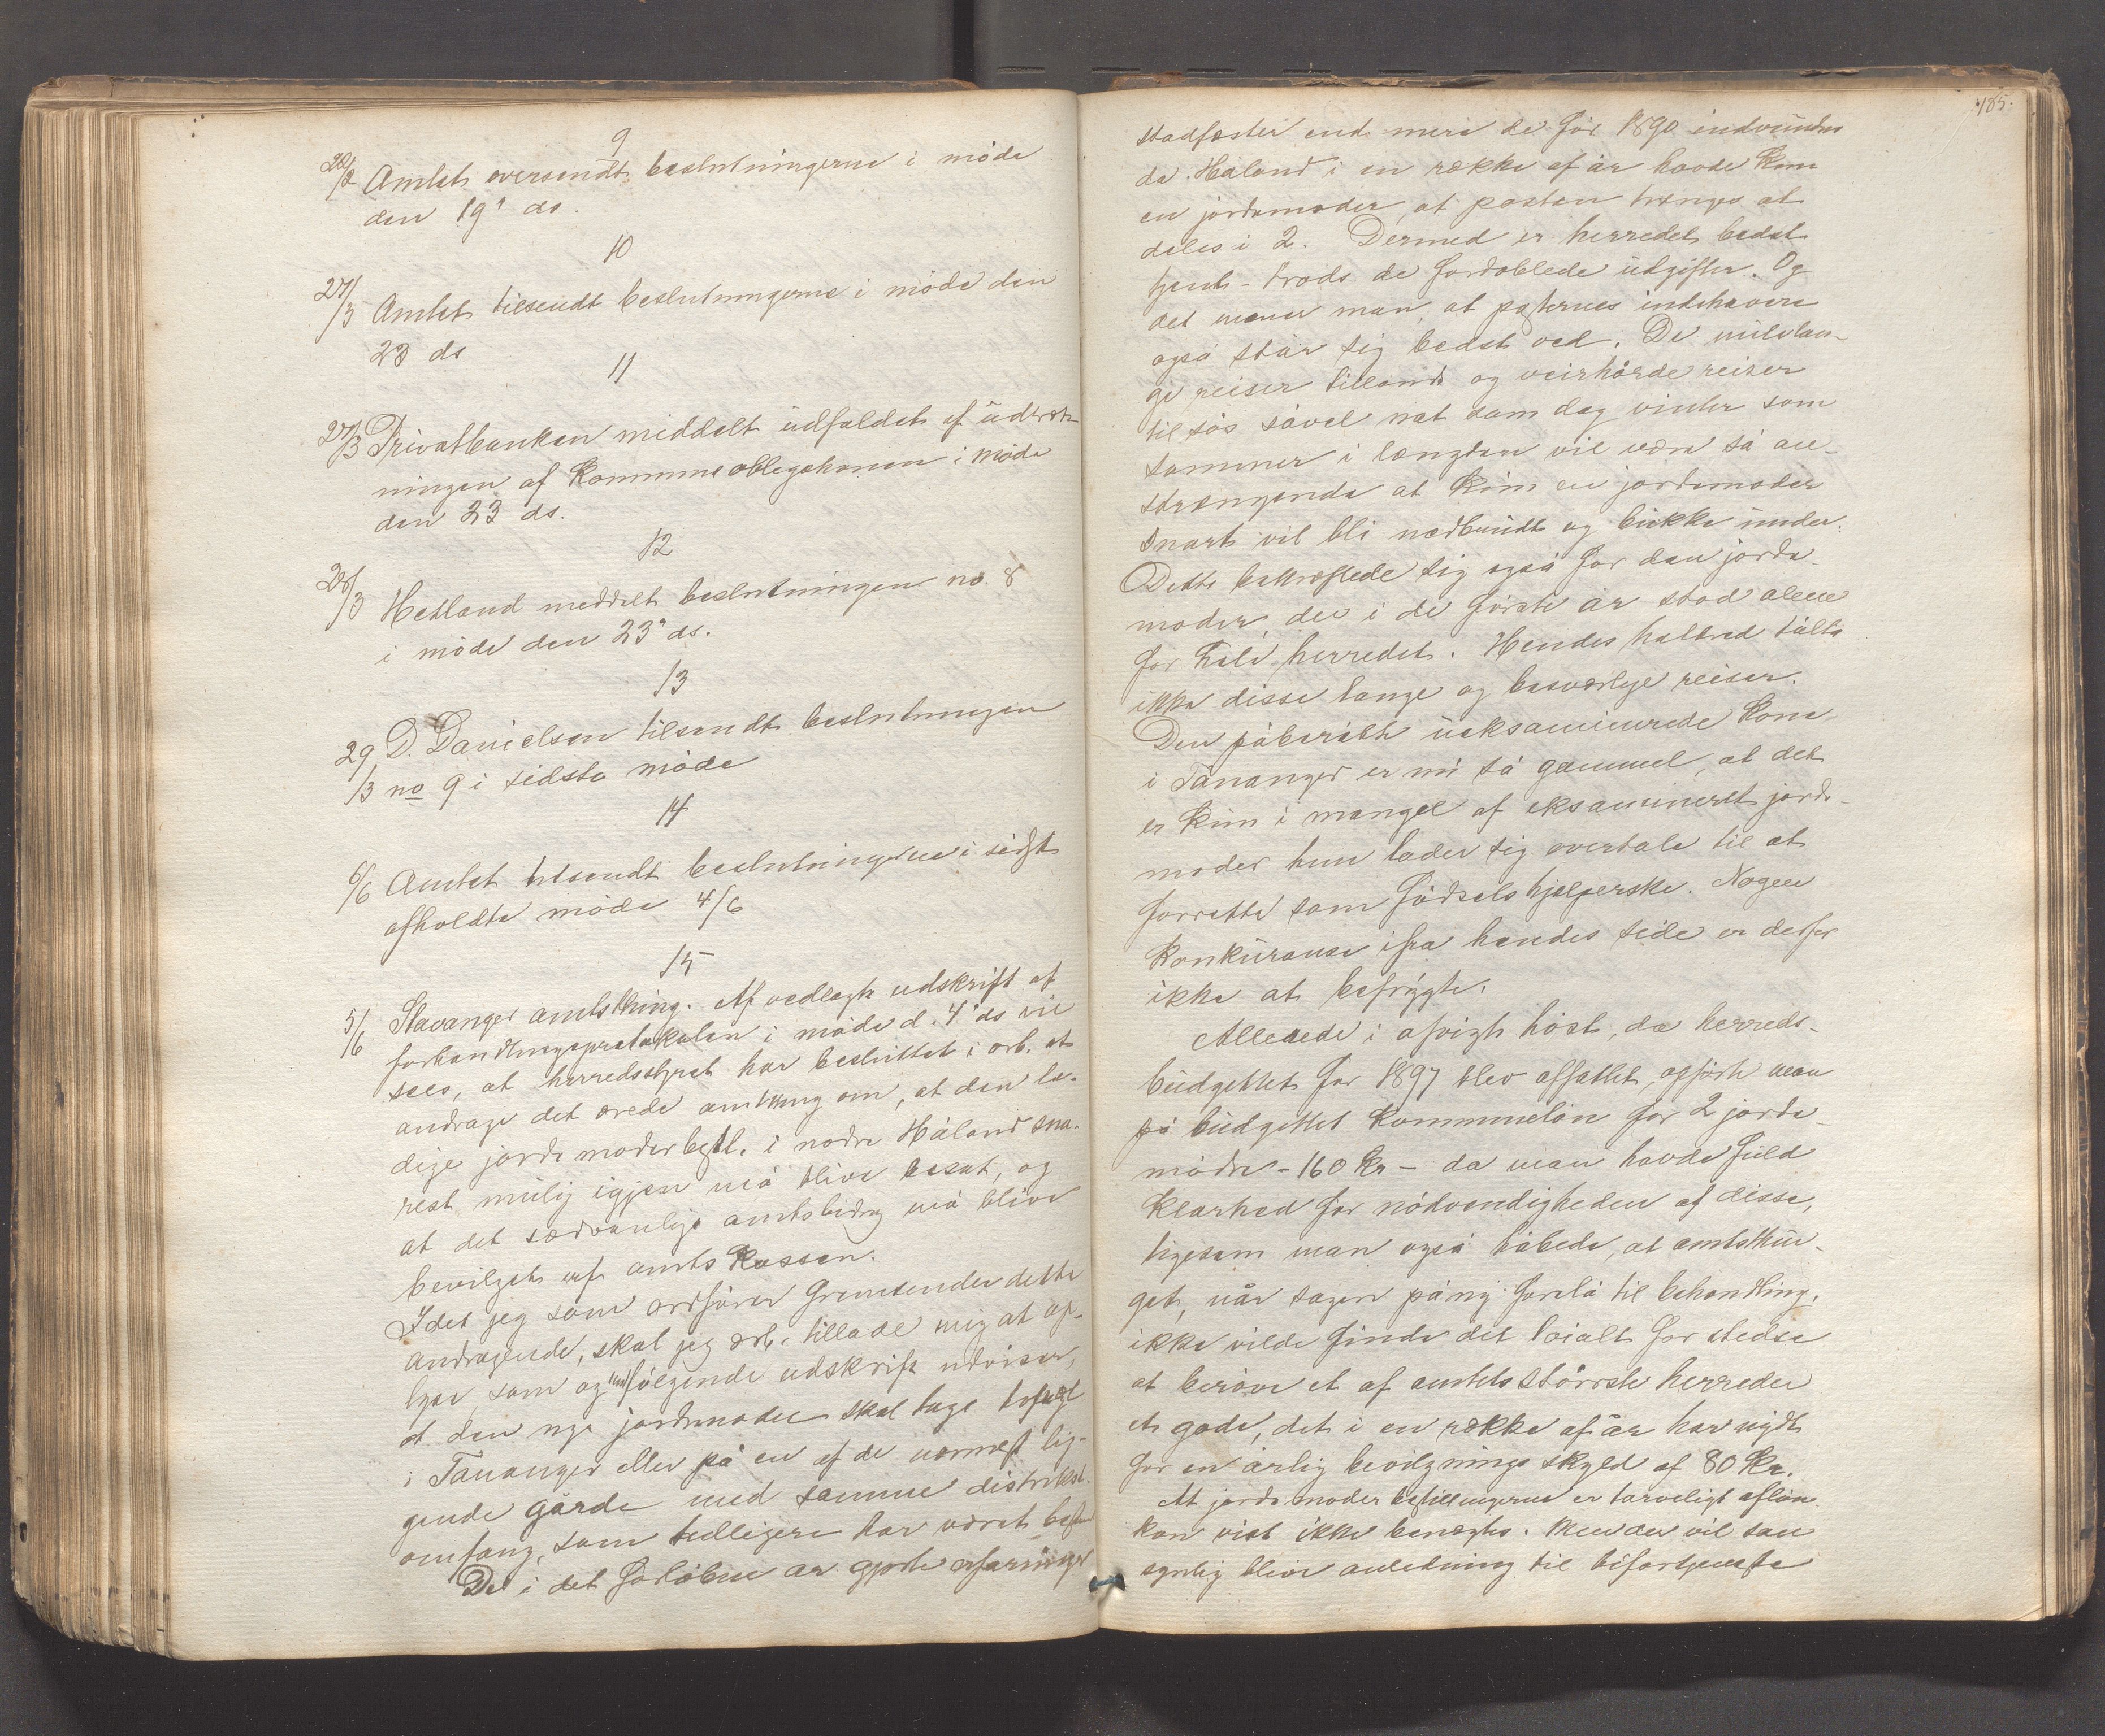 9
22/2 Amtet oversendt beslutningerne i møde
den 19' ds.
10
27/3 Amtet tilsendt beslutningerne i møde den
23 ds
11
27/3 Privatbanken middelt udfaldet af udtræk-
ningen af Kommuneobligationen i møde
den 23 ds.
12
28/3 Hetland meddelt beslutningen no. 8
i møde den 23' ds.
13
29/3 D. Danielsen tilsendt beslutningen
no 9 i sidste møde
14
6/6 Amtet tilsendt beslutningerne i sidst
afholdte møde 4/6
15
5/6 Stavanger amtsthing. Af vedlagte udskrift af
forhandlingsprotokolen i møde d. 4' ds vil
sees, at herredsstyret har besluttet i ærb. at
andrage det ærede amtthing om, at den le-
dige jordemoderbestl. i nedre Håland sna-
rest mulig igjen må blive besat, og
at det sædvanlige amtsbidrag må blive
bevilget af amtskassen.
Idet jeg som ordfører fremsender dette
andragende, skal jeg ærb. tillade mig at op-
lyse, som og medfølgende udskrift udviser,
at den nye jordemoder skal tage bopæl
i Tananger eller på en af de nærmest lig-
gende gårde med samme distrikts-
omfang, som tidligere har været bestemt
De i det forløbne år gjorte erfaringer
185.
stadfæster end mere de før 1890 indvundne
da Håland i en række af år havde kun
en jordemoder, at posten trænges at
deles i 2. Dermed er herredet bedst
tjent - trods de fordoblede udgifter. Og
det mener man, at posternes indehavere
også står sig bedst ved. De milelan-
ge reiser tillands og veirhårde reiser
til søs såvel nat som dag vinter som
sommer i længden vil være så an-
strængende at kun en jordemoder
snart vil bli nedbrudt og bukke under.
Dette bekræftede sig også for den jorde-
moder, der i de første år stod alene
for hele herredet. Hendes helbred tålte
ikke disse lange og besværlige reiser.
Den påberåbte ueksaminerede kone
i Tananger er nu så gammel, at det
er kun i mangel af eksamineret jorde-
moder hun lader sig overtale til at
forrette som fødselshjelperske. Nogen
konkurance ifra hendes side er derfor
ikke at befrygte.
Allerede i afvigte høst, da herreds-
budgettet for 1897 blev affattet, opførte man
på budgettet kommuneløn for 2 jorde-
mødre - 160 Kr - da man havde fuld
klarhed for nødvendigheden af disse,
ligesom man også håbede, at amtsthin-
get, når sagen påny forelå til behandling,
ikke vilde finde det loialt for stedse
at berøve et af amtets største herreder
et gode, det i en række af år har nydt
for en årlig bevilgnings skyld af 80 Kr.
At jordemoderbestillingerne er tarveligt afløn.
kan vist ikke benægtes. Men der vil san
synlig blive anledning til bifortjeneste